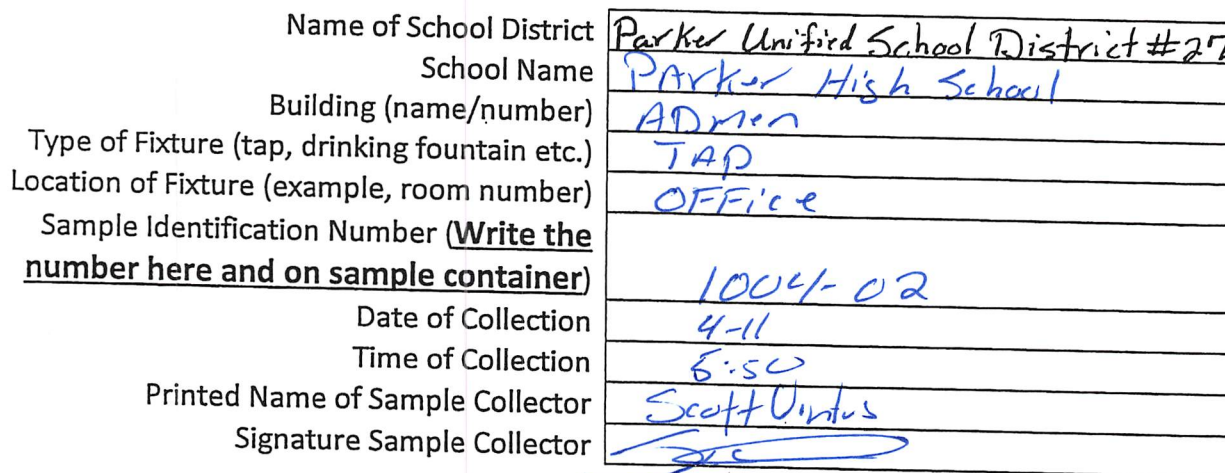 Name of School District Parker Unified School District #27
School Name PArker High School
Building (name/number) ADmen
Type of Fixture (tap, drinking fountain etc.) TAP
Location of Fixture (example, room number) OFFice
Sample Identification Number (Write the
number here and on sample container) 1004-02
Date of Collection 4-11
Time of Collection 5:50
Printed Name of Sample Collector Scott
Signature Sample Collector